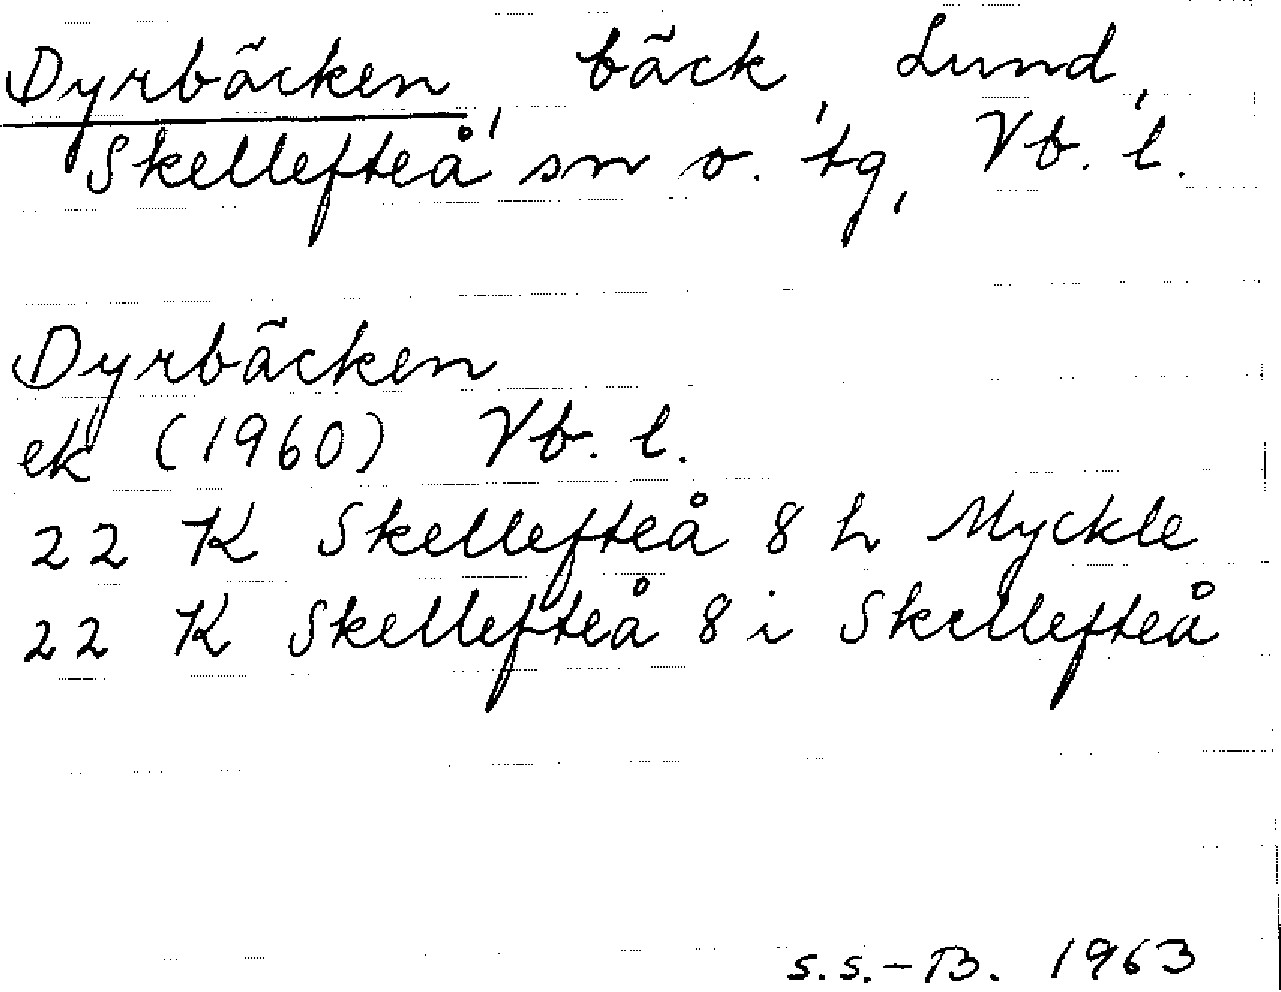 Dyrbäcken, bäck, Lund,
Skellefteå sn o. tg, Vb. l.
Dyrbäcken
ek (1960) Vb. l.
22 K Skellefteå 8 h Myckle
22 K Skellefteå 8 i Skellefteå
S.S.-B. 1963